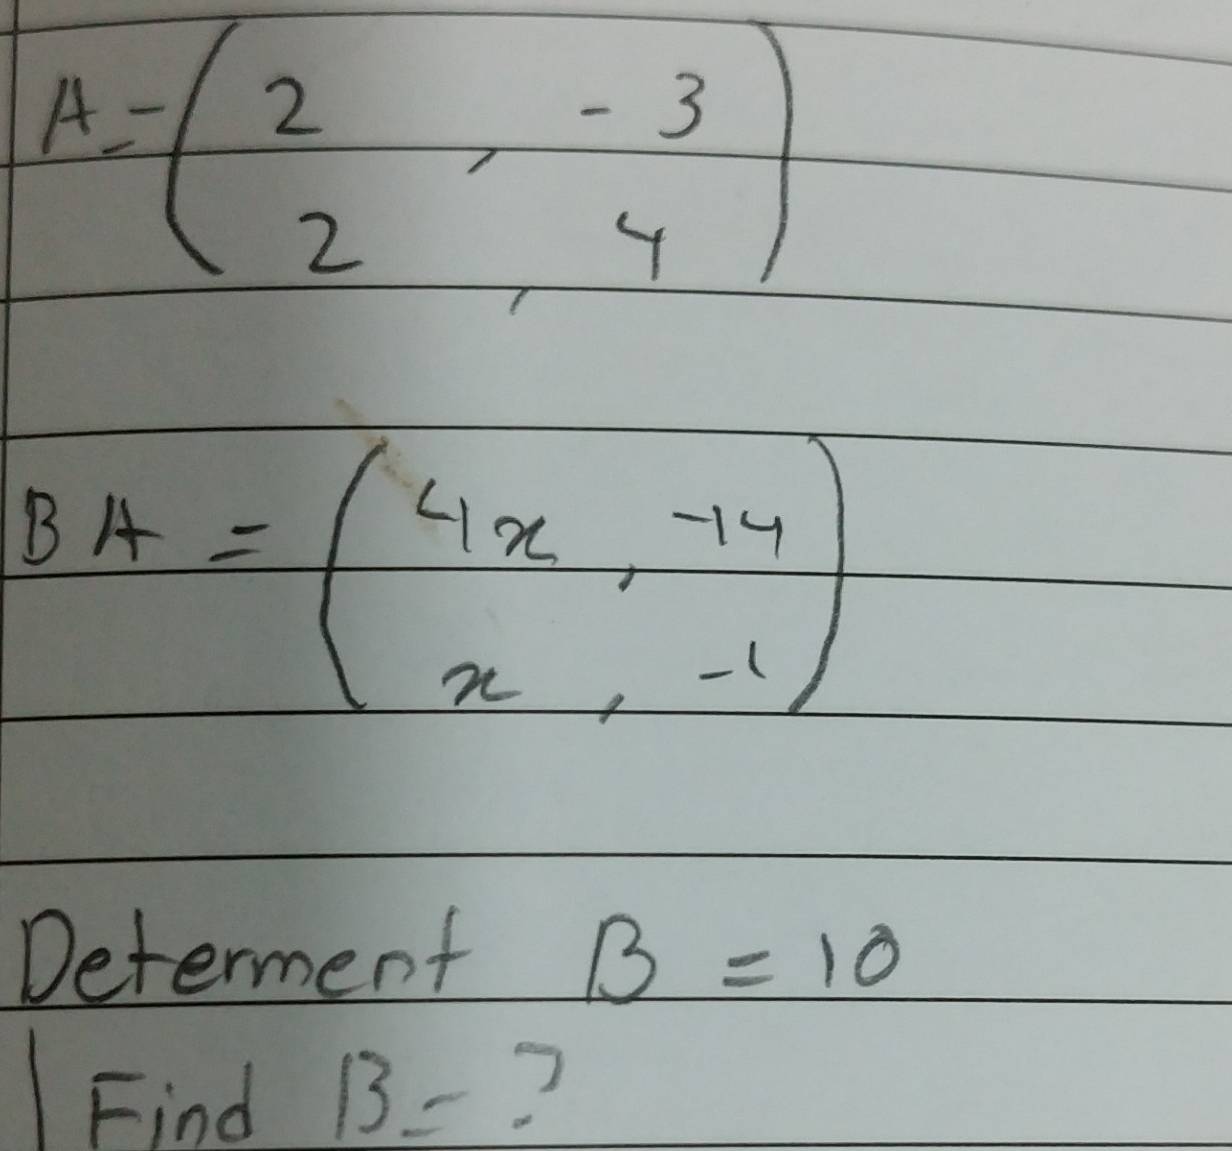 A = ( 2 , - 3
2 , 4 )
BA = ( 4x , -14
x , -1 )
Determent B = 10
Find B = ?